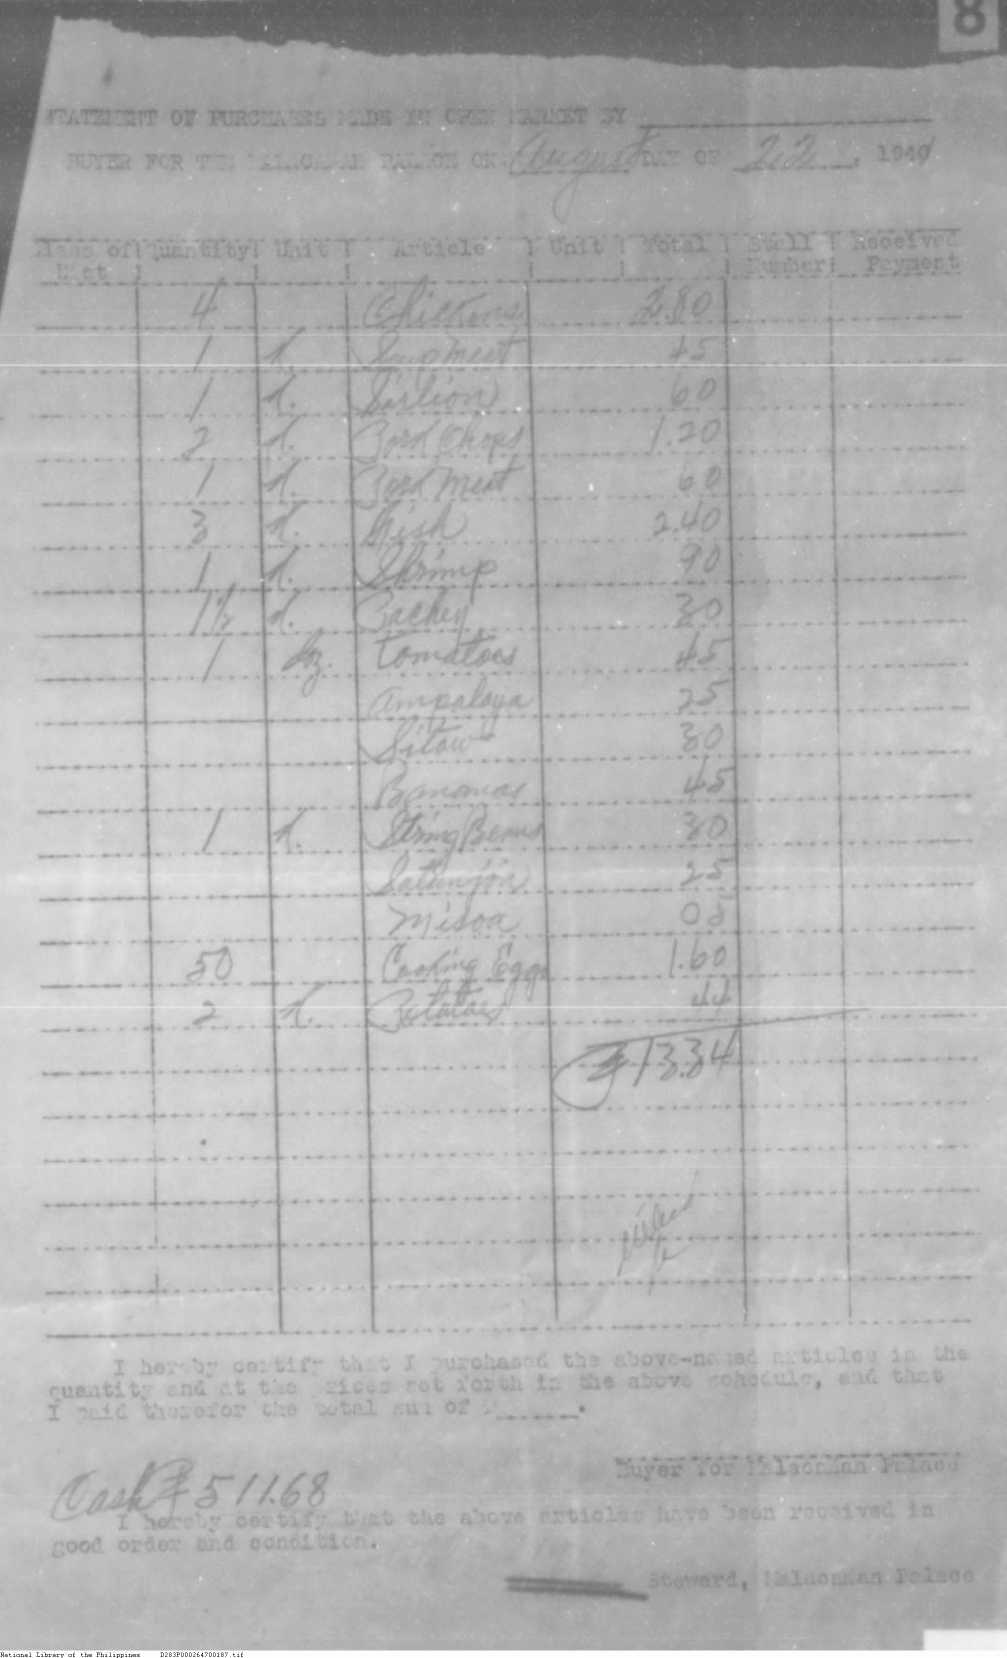 8
STATEMENT OF PURCHASES MADE IN OPEN MARKET BY
BUYER FOR THE MALACAÑAN PALACE ON August DAY OF 22, 1940
Class of Quantity Unit Article Unit Total Stall Received
Number Payment
4 Chickens 2.80
1 k. Soup meat 45
1 k. Sirlion 60
2 k. Pork Chops 1.20
1 k. Pork meat 60
3 k. Fish 2.40
1 k. Shrimp 90
1½ k. Pachey 30
1 doz. tomatoes 45
Ampalaya 25
Sitaw 30
Bananas 45
1 k. String Beans 30
25
Misoa 05
50 Cooking Eggs 1.60
2 k. Potatoes 44
₱13.34
I hereby certify that I purchased the above-named articles in the
quantity and at the prices set forth in the above schedule, and that
I paid therefor the total sum of
Buyer for Malacañan Palace
Cash ₱511.68
I hereby certify that the above articles have been received in
good order and condition.
Steward, Malacañan Palace
National Library of the Philippines D283P000264700187.tif